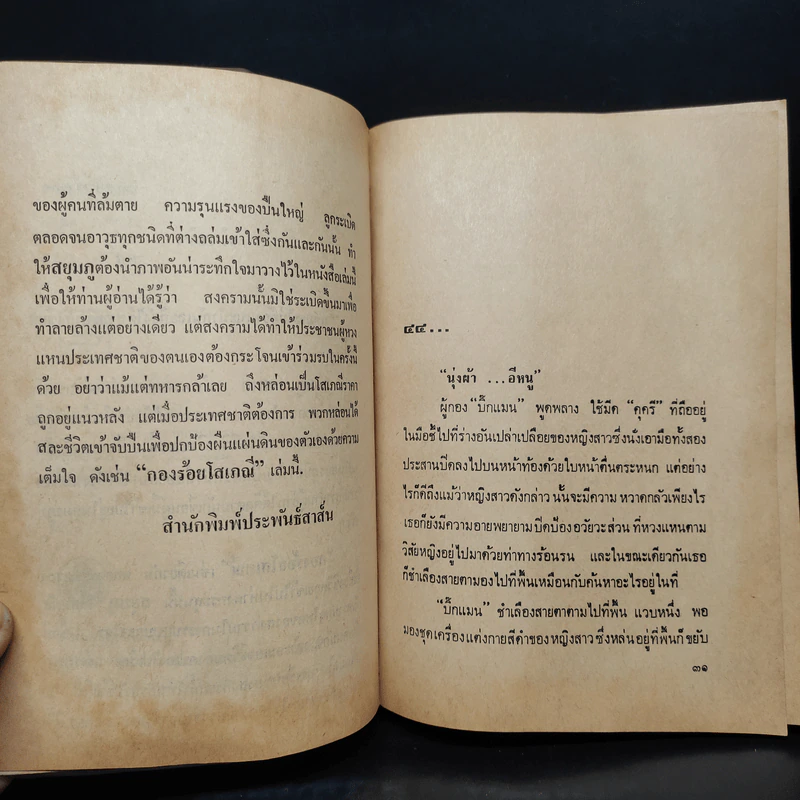 ของผู้คนที่ล้มตาย ความรุนแรงของปืนใหญ่ ลูกระเบิด
ตลอดจนอาวุธทุกชนิดที่ต่างถล่มเข้าใส่ซึ่งกันและกันนั้น ทำ
ให้สยุมภูต้องนำภาพอันน่าระทึกใจมาวางไว้ในหนังสือเล่มนี้
เพื่อให้ท่านผู้อ่านได้รู้ว่า สงครามนั้นมิใช่ระเบิดขึ้นมาเพื่อ
ทำลายล้างแต่อย่างเดียว แต่สงครามได้ทำให้ประชาชนผู้หวง
แหนประเทศชาติของตนเองต้องกระโจนเข้าร่วมรบในครั้งนี้
ด้วย อย่าว่าแม้แต่ทหารกล้าเลย ถึงหล่อนเป็นโสเภณีราคา
ถูกอยู่แนวหลัง แต่เมื่อประเทศชาติต้องการ พวกหล่อนได้
สละชีวิตเข้าจับปืนเพื่อปกป้องผืนแผ่นดินของตัวเองด้วยความ
เต็มใจ ดังเช่น “กองร้อยโสเภณี” เล่มนี้.
สำนักพิมพ์ประพันธ์สาส์น
๔๔...
“นุ่งผ้า ...อีหนู”
ผู้กอง “บิ๊กแมน” พูดพลาง ใช้มีด “คุครี” ที่ถืออยู่
ในมือชี้ไปที่ร่างอันเปล่าเปลือยของหญิงสาวซึ่งนั่งเอามือทั้งสอง
ประสานปิดลงไปบนหน้าท้องด้วยใบหน้าตื่นตระหนก แต่อย่าง
ไรก็ดีถึงแม้ว่าหญิงสาวดังกล่าว นั้นจะมีความ หวาดกลัวเพียงไร
เธอก็ยังมีความอายพยายาม ปิดป้อง อวัยวะส่วน ที่หวงแหนตาม
วิสัยหญิงอยู่ไปมาด้วยท่าทางร้อนรน และในขณะเดียวกันเธอ
ก็ชำเลืองสายตามองไปที่พื้นเหมือนกับค้นหาอะไรอยู่ในที่
“บิ๊กแมน” ชำเลืองสายตาตามไปที่พื้น แวบหนึ่ง พอ
มองชุดเครื่องแต่งกายสีดำของหญิงสาว ซึ่งหล่น อยู่ที่พื้นก็ ขยับ
๓๑